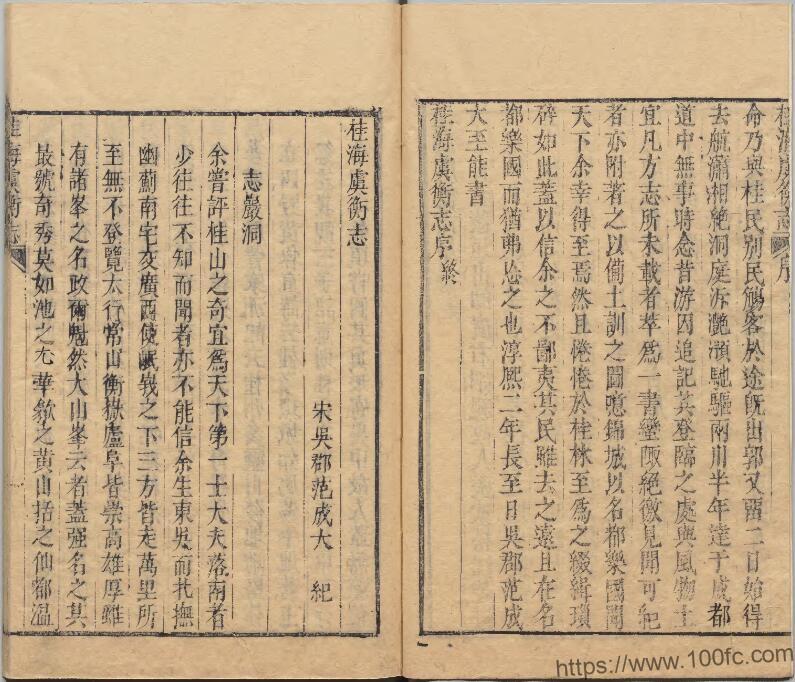 桂海虞衡志 序
命乃與桂民別民觴客於途既出郭又留二日始得
去航瀟湘絕洞庭泝灧澦馳驅兩川半年達于成都
道中無事時念昔游因追記其登臨之處與風物土
宜凡方志所未載者萃爲一書蠻陬絕徼見聞可紀
者亦附著之以備土訓之圖噫錦城以名都樂國聞
天下余幸得至焉然且惓惓於桂林至爲之綴緝瑣
碎如此蓋以信余之不鄙夷其民雖去之遠且在名
都樂國而猶弗忘之也淳熙二年長至日吳郡范成
大至能書
桂海虞衡志序終
桂海虞衡志
宋吳郡范成大 紀
志巖洞
余嘗評桂山之奇宜爲天下第一士大夫落南者
少往往不知而聞者亦不能信余生東吳而北撫
幽薊南宅交廣西使岷峩之下三方皆走萬里所
至無不登覽太行常山衡嶽廬阜皆崇高雄厚雖
有諸峯之名政爾魁然大山峯云者蓋强名之其
最號奇秀莫如池之九華歙之黃山括之仙都溫
桂海虞衡志
https://www.100fc.com